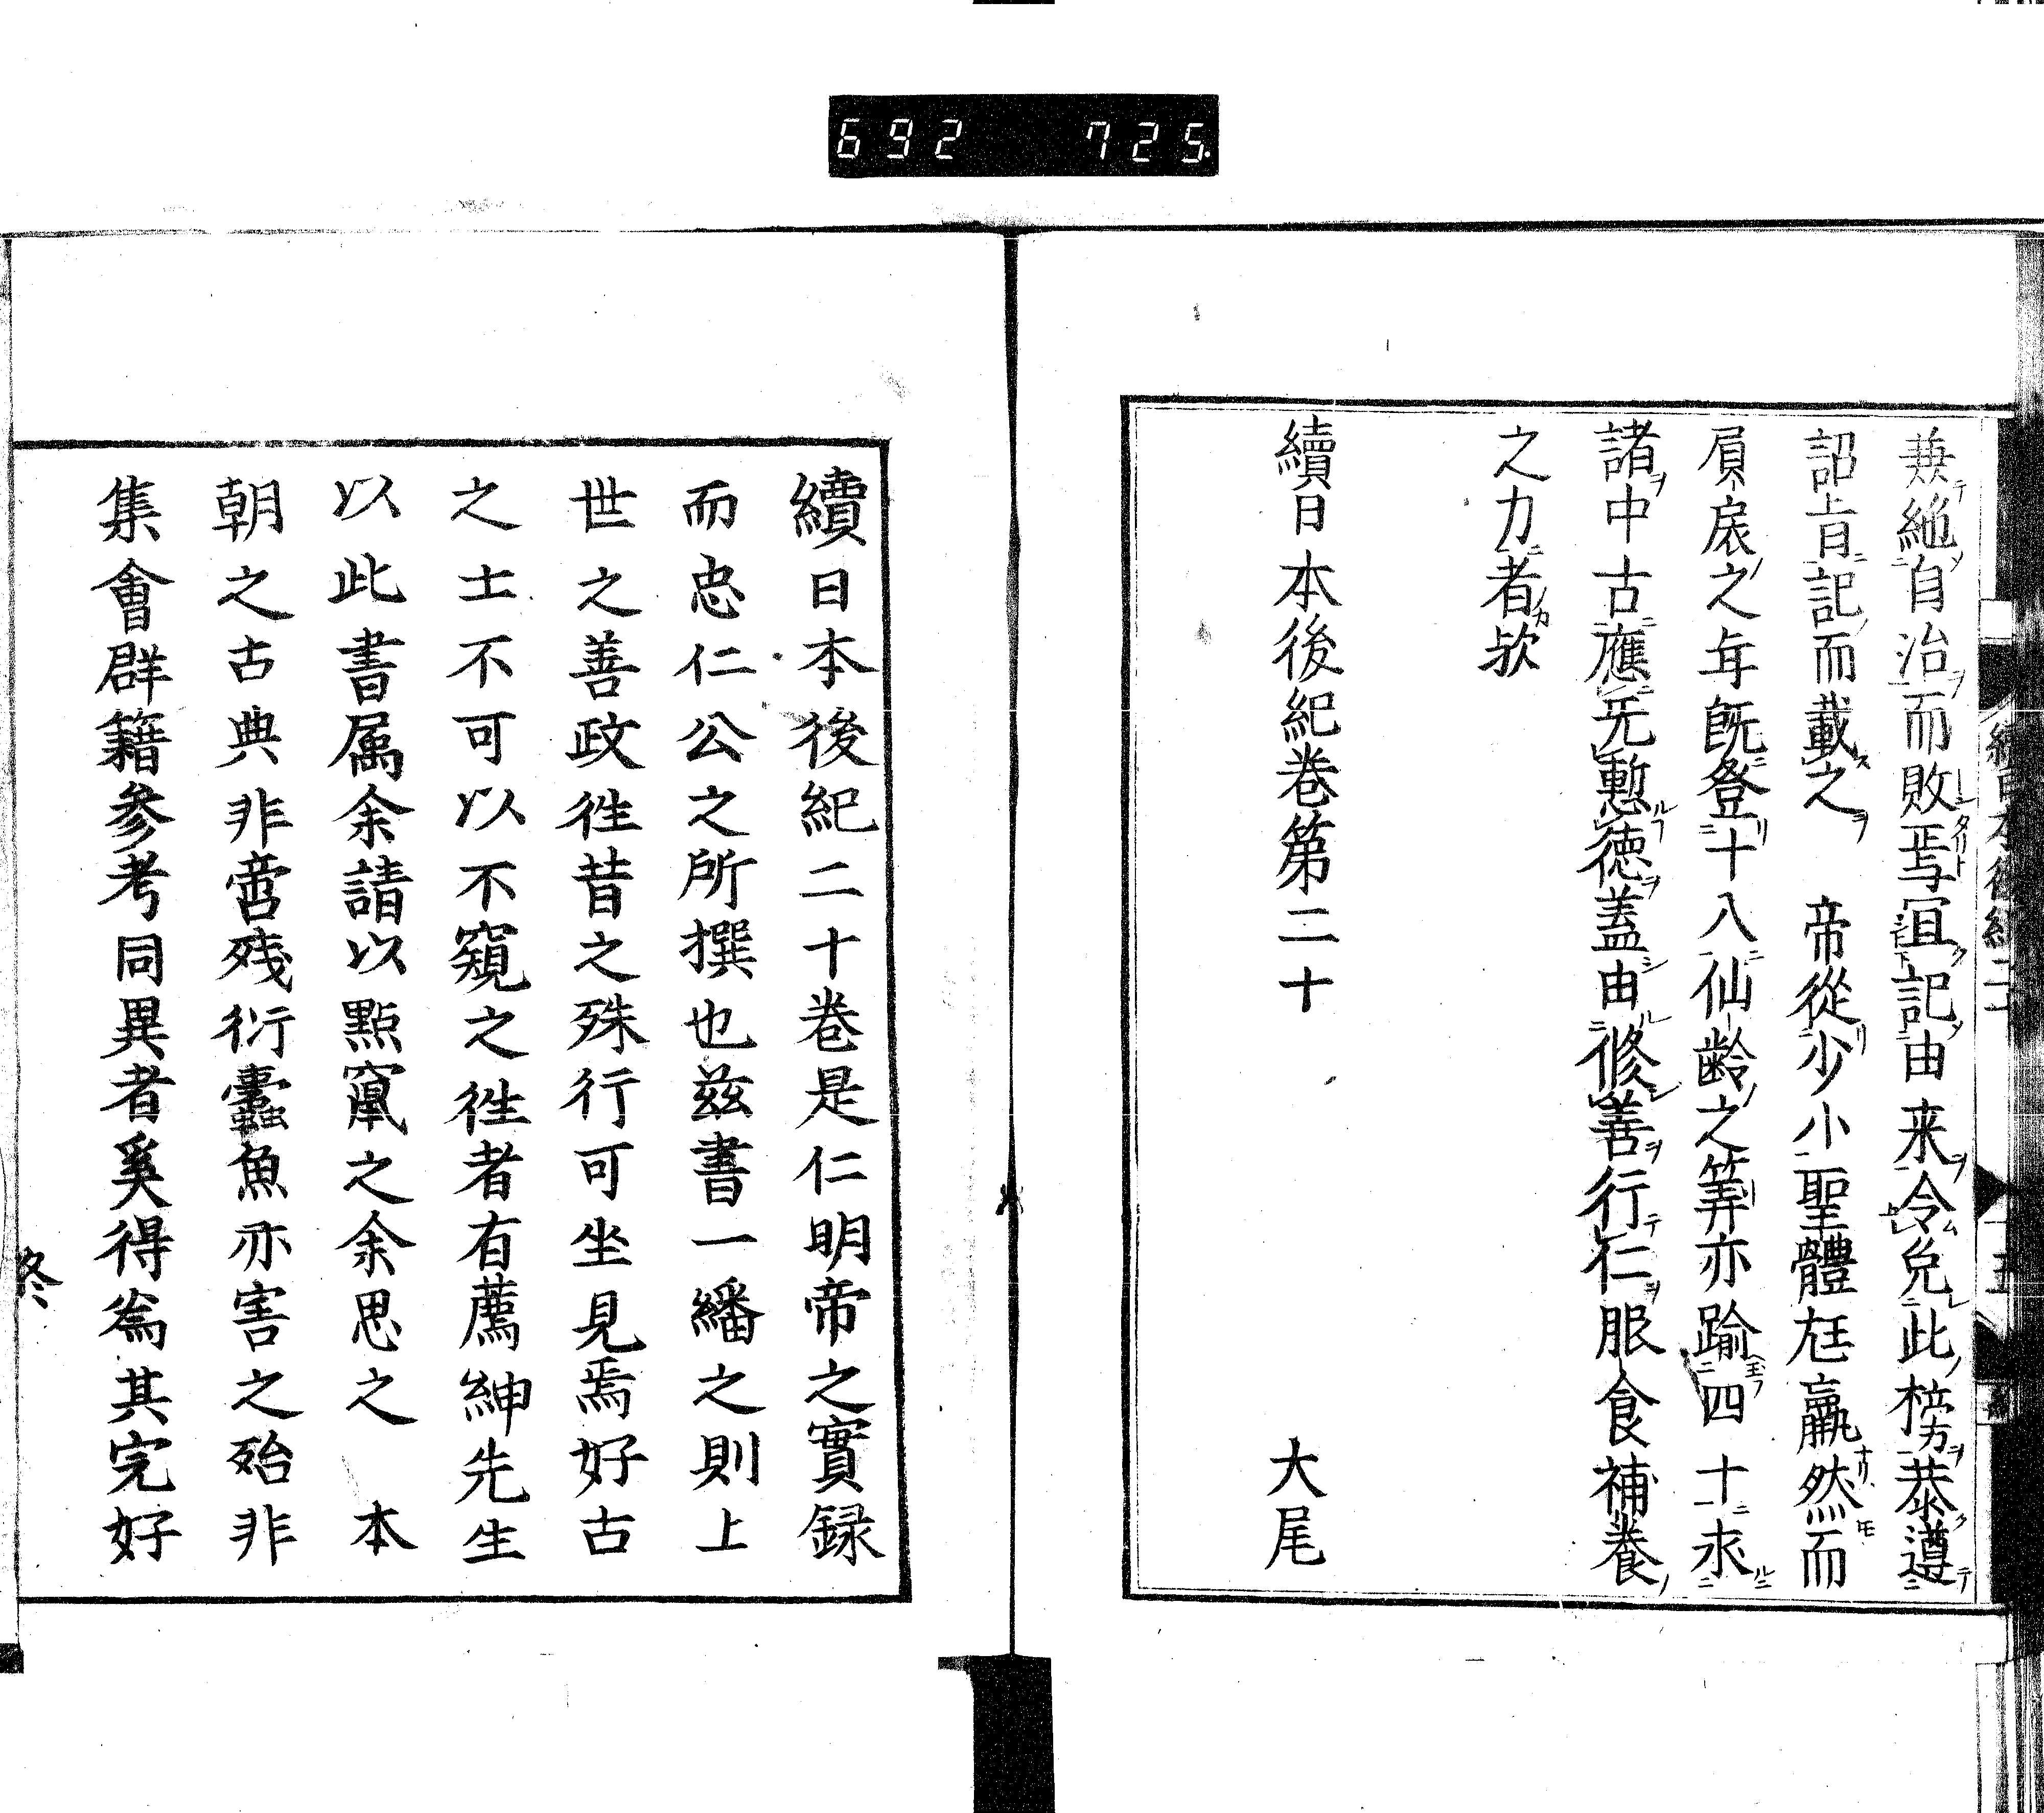 692 725.
兼絶自治而敗焉冝記由来令免此榜恭遵
詔旨記而載之 帝從少小聖體尩羸然而
負扆之年既登十八仙齢之筭亦踰四十求
諸中古應旡慙徳蓋由修善行仁服食補養
之力者欤
續日本後紀巻第二十 大尾
續日本後紀二十巻是仁明帝之實録
而忠仁公之所撰也茲書一繙之則上
世之善政徃昔之殊行可坐見焉好古
之士不可以不窺之徃者有薦紳先生
以此書属余請以點竄之余思之 本
朝之古典非啻残衍蠹魚亦害之殆非
集會群籍参考同異者奚得為其完好
终